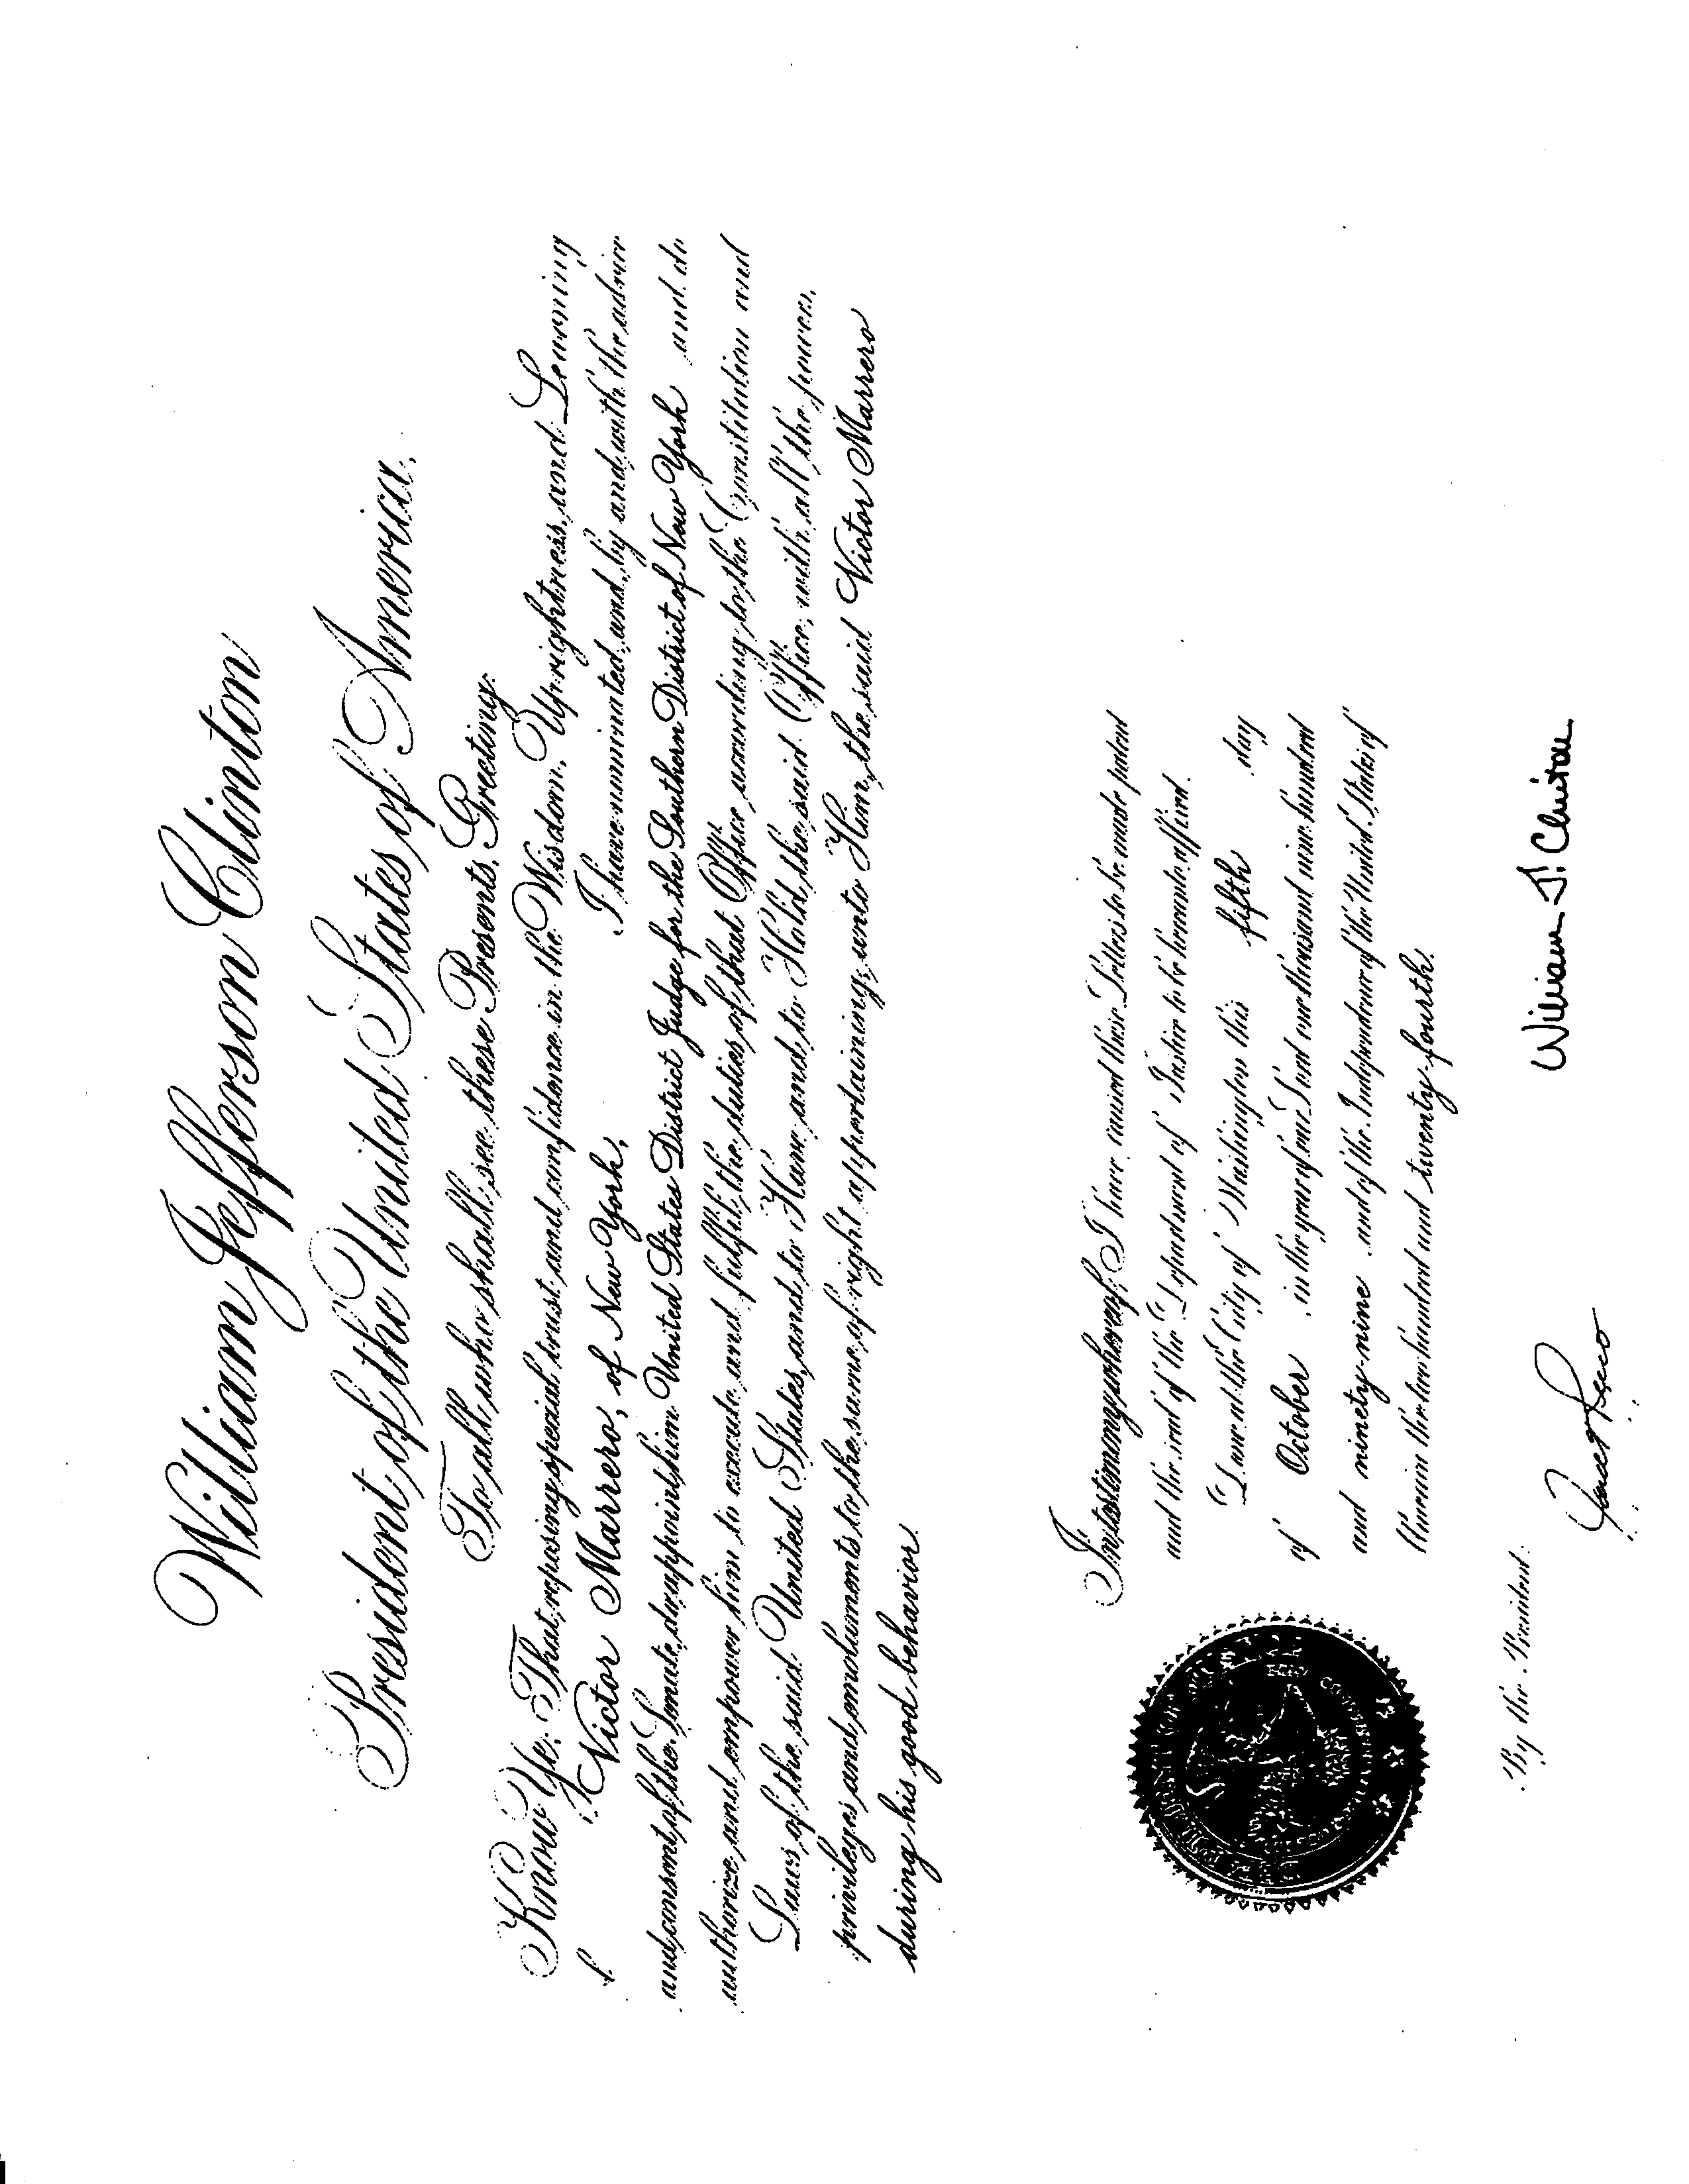 William Jefferson Clinton
President of the United States of America.
To all who shall see these Presents, Greeting:
Know Ye: That, reposing special trust and confidence in the Wisdom, Uprightness, and Learning
of Victor Marrero, of New York, I have nominated, and, by and with the advice
and consent of the Senate, do appoint him United States District Judge for the Southern District of New York and do
authorize and empower him to execute and fulfil the duties of that Office according to the Constitution and
Laws of the said United States, and to Have and to Hold the said Office, with all the powers,
privileges and emoluments to the same of right appertaining, unto Him, the said Victor Marrero
during his good behavior.
In testimony whereof, I have caused these Letters to be made patent
and the seal of the Department of Justice to be hereunto affixed.
Done at the City of Washington this fifth day
of October in the year of our Lord one thousand nine hundred
and ninety-nine and of the Independence of the United States of
America the two hundred and twenty-fourth.
William J. Clinton
By the President:
Janet Reno